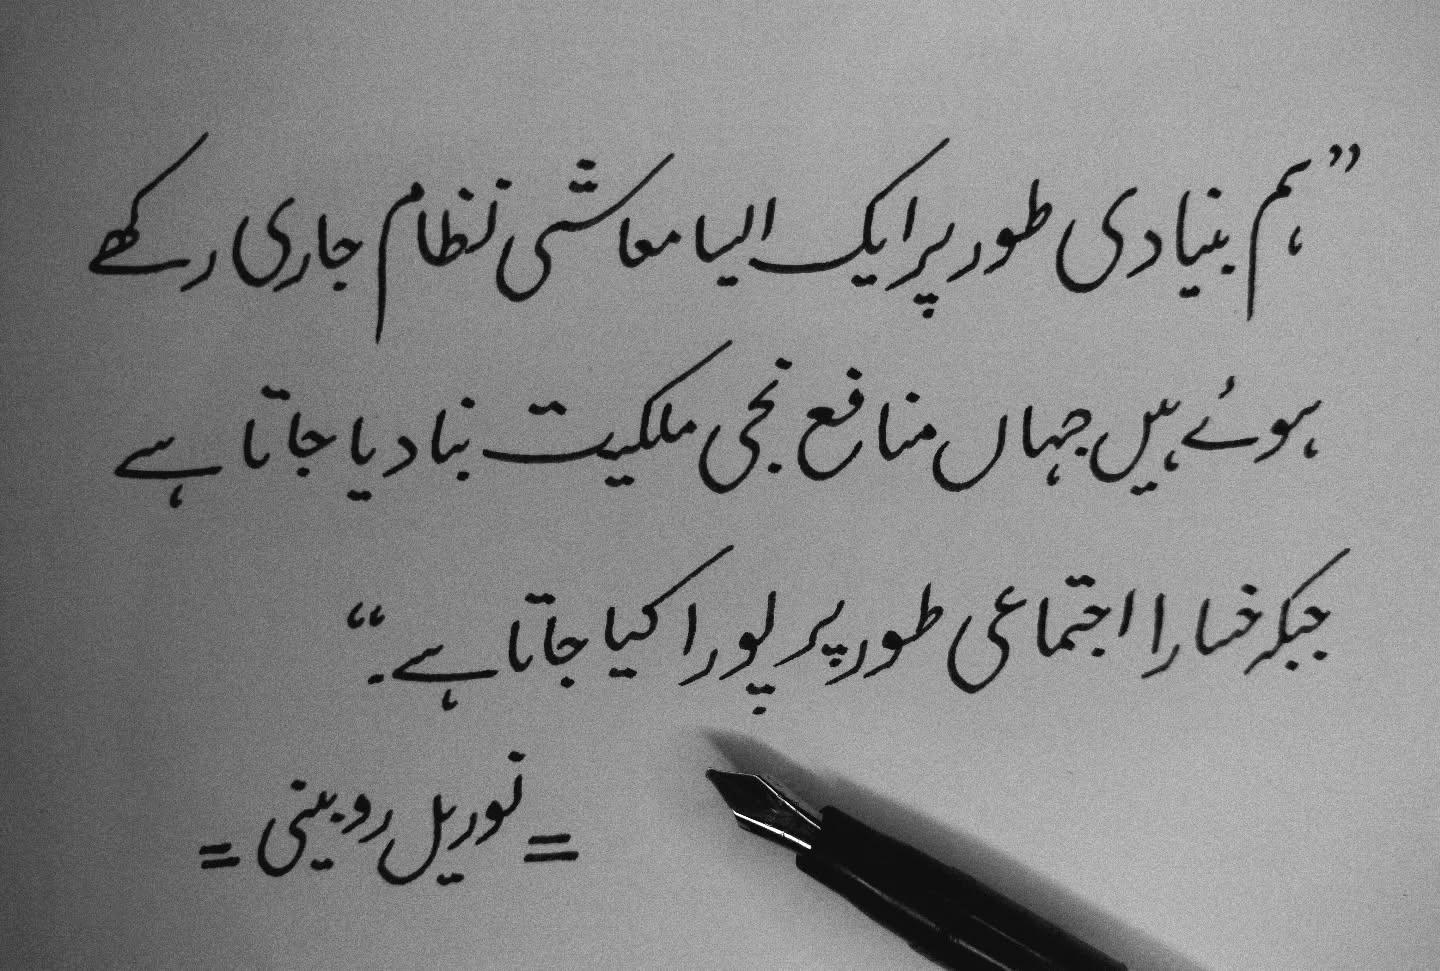 ”ہم بنیادی طور پر ایک ایسا معاشی نظام جاری رکھے
ہوئے ہیں جہاں منافع نجی ملکیت بنا دیا جاتا ہے
جبکہ خسارا اجتماعی طور پر پورا کیا جاتا ہے۔“
= نوریل روبینی =